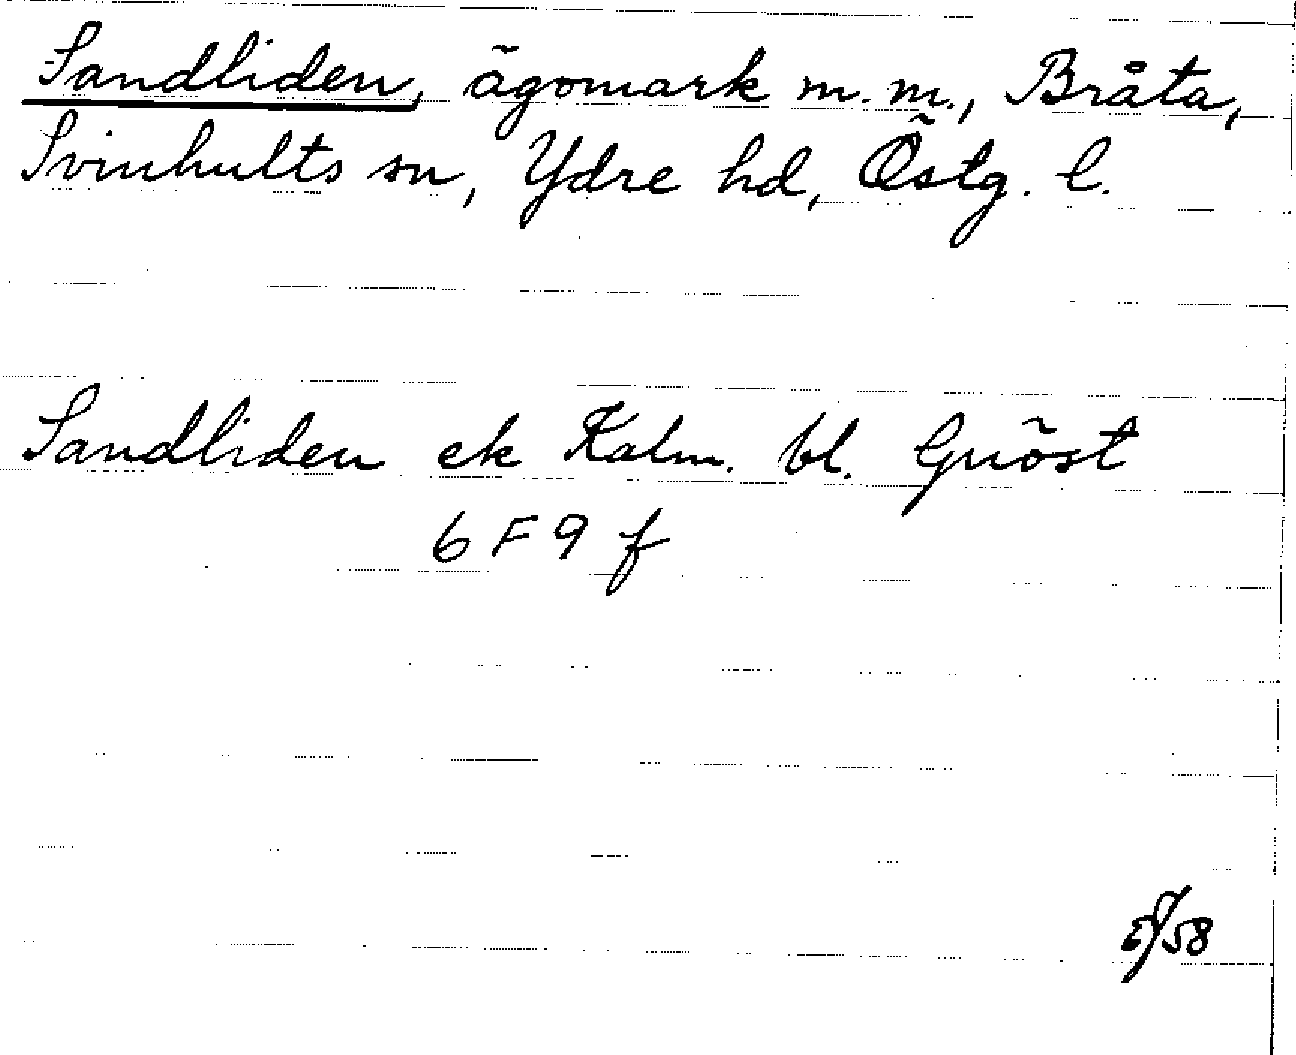 Sandliden, ägomark m.m., Bråta,
Svinhults sn, Ydre hd, Östg. l.
Sandliden ek Kalm. bl. Gnöst
6 F 9 f
/58